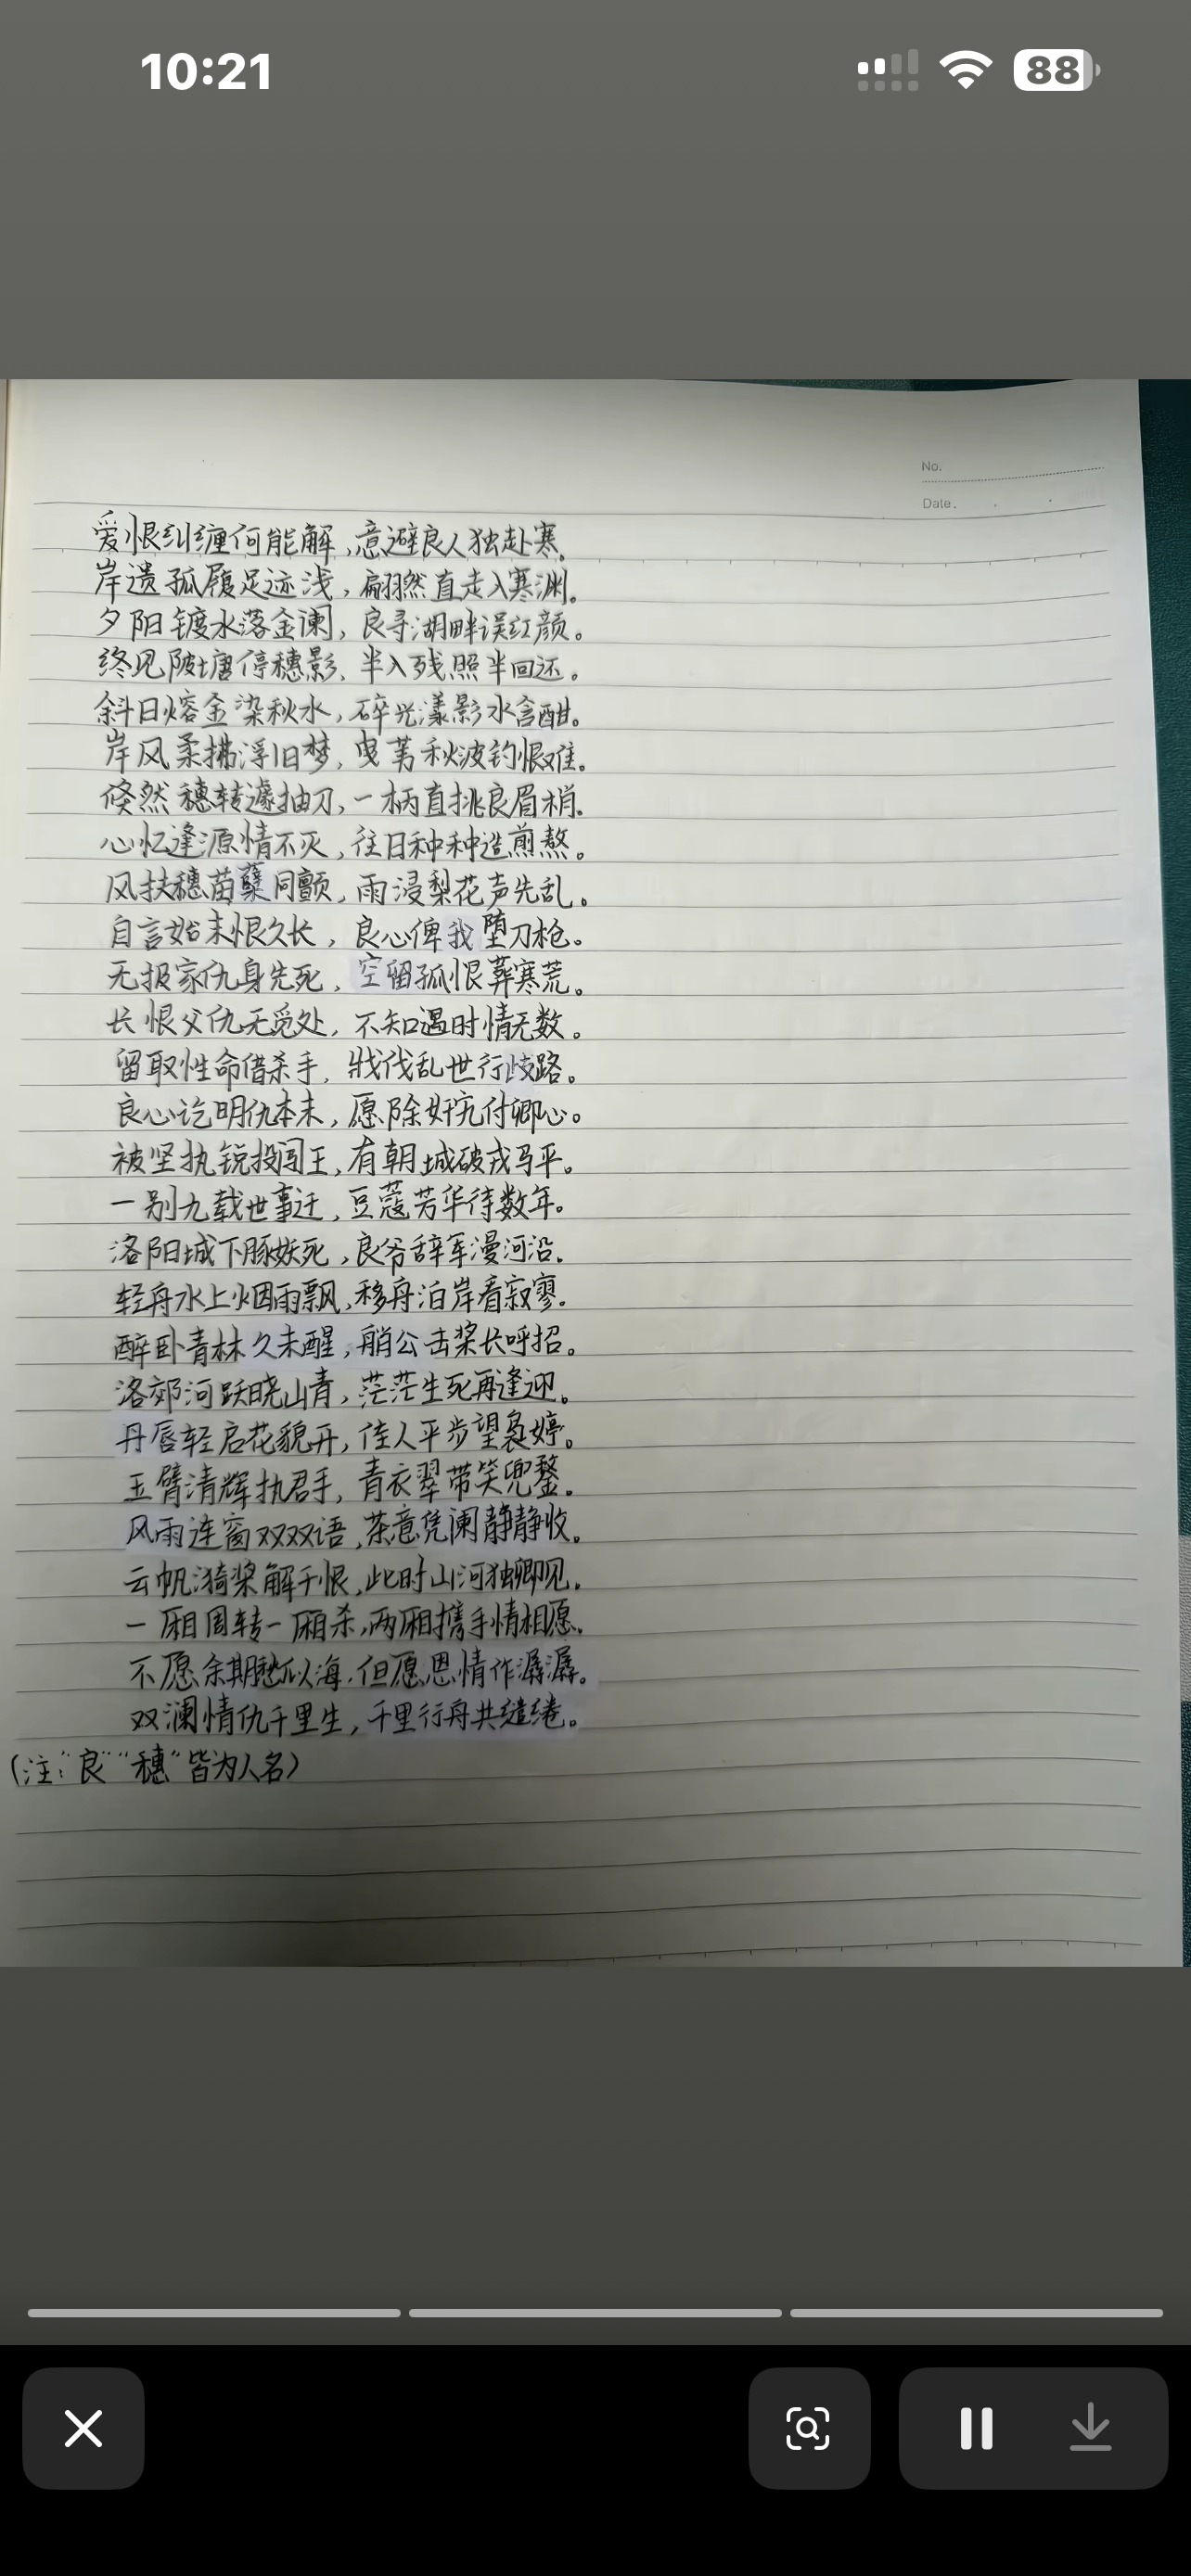 10:21
88
No.
Date.
爱恨纠缠何能解,意避良人独赴寒。
岸遗孤履足迹浅,翩然直走入寒渊。
夕阳镀水落金阑,良寻湖畔误红颜。
终见陂塘停穗影,半入残照半回还。
斜日熔金染秋水,碎光漾影水含酣。
岸风柔拂浮旧梦,曳苇秋波钓恨难。
倏然穗转遽抽刀,一柄直挑良眉梢。
心忆逢源情不灭,往日种种造煎熬。
风扶穗苗蘖同颤,雨浸梨花声先乱。
自言始末恨久长,良心俾我堕刀枪。
无报家仇身先死,空留孤恨葬寒荒。
长恨父仇无觅处,不知遇时情无数。
留取性命借杀手,戕伐乱世行歧路。
良心讫明仇本末,愿除奸宄付卿心。
被坚执锐投闯王,有朝城破戎马平。
一别九载世事迁,豆蔻芳华待数年。
洛阳城下豚妖死,良爷辞军漫河沿。
轻舟水上烟雨飘,移舟泊岸看寂寥。
醉卧青林久未醒,艄公击桨长呼招。
洛郊河跃晓山青,茫茫生死再逢迎。
丹唇轻启花貌开,佳人平步望袅婷。
玉臂清辉执君手,青衣翠带笑兜鍪。
风雨连窗双双语,茶意凭阑静静收。
云帆漪桨解千恨,此时山河独卿见。
一厢周转一厢杀,两厢携手情相愿。
不愿余期愁似海,但愿恩情作潺潺。
双澜情仇千里生,千里行舟共缱绻。
(注:"良""穗"皆为人名)